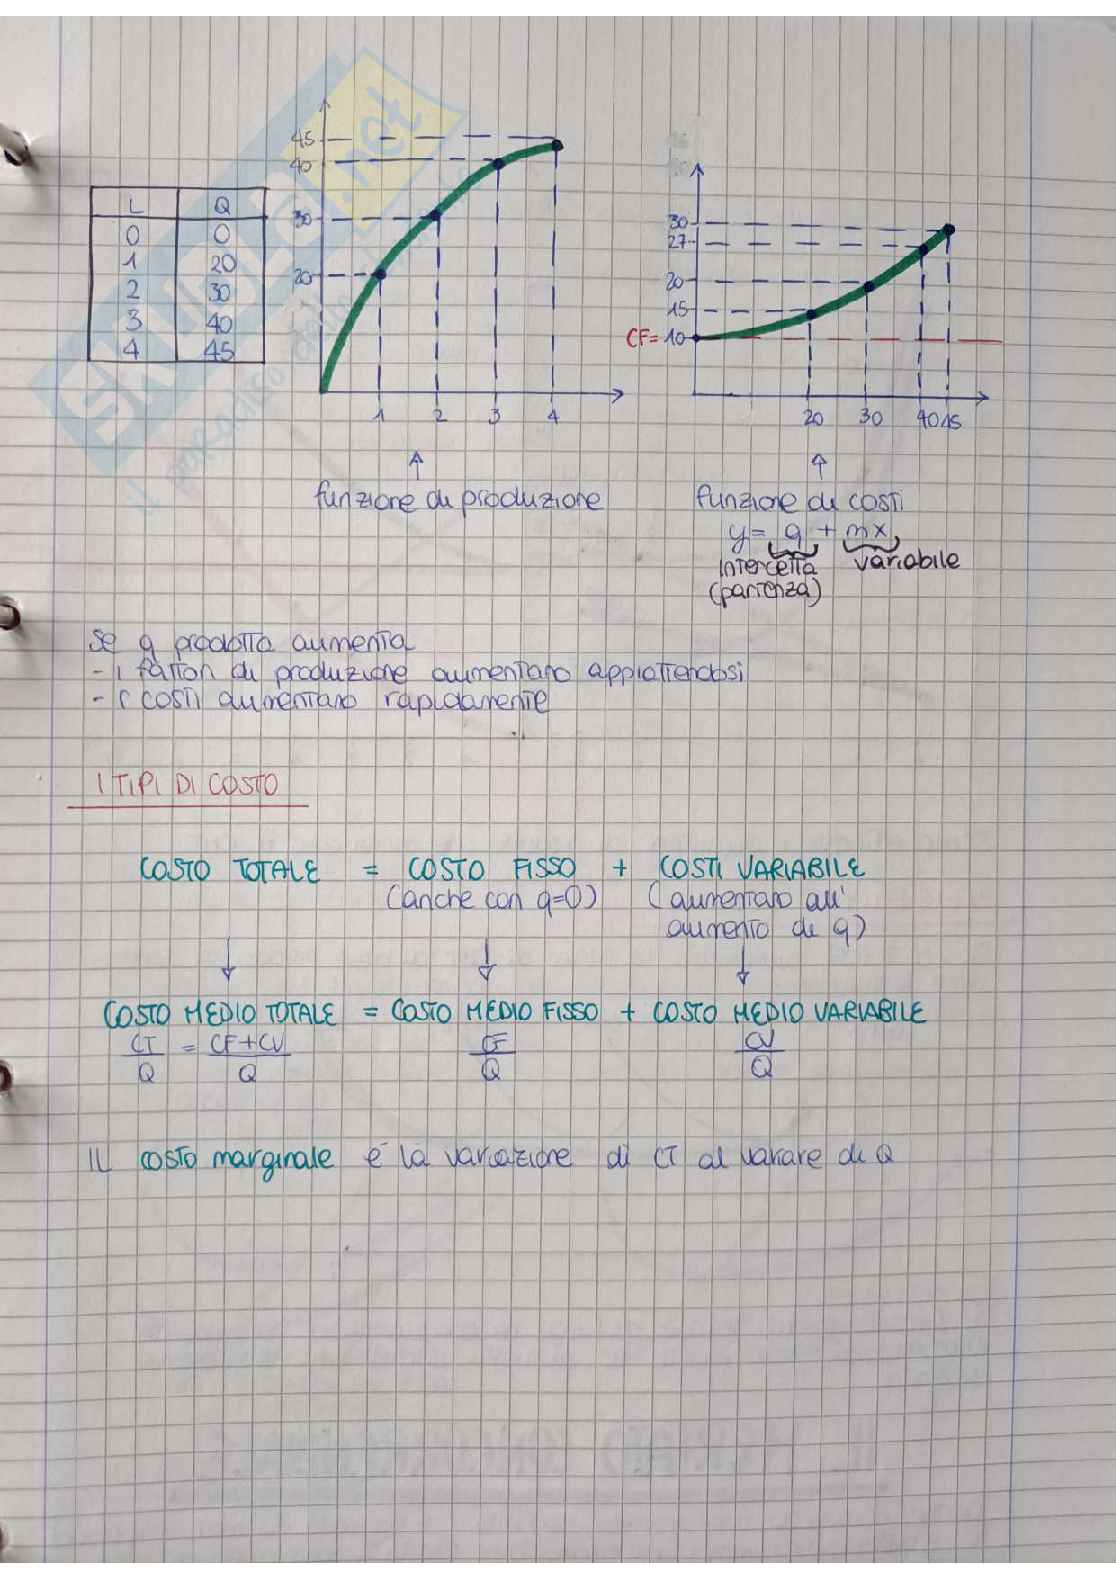 L Q
0 0
1 20
2 30
3 40
4 45
45
40
30
20
1 2 3 4
funzione di produzione
30
27
20
15
CF= 10
20 30 40 45
funzione di costi
y= q + mx
intercetta variabile
(partenza)
se q prodotta aumenta
- i fattori di produzione aumentano appiattendosi
- i costi aumentano rapidamente
I TIPI DI COSTO
COSTO TOTALE = COSTO FISSO + COSTI VARIABILE
(anche con q=0) (aumentano all'
aumento di q)
COSTO MEDIO TOTALE = COSTO MEDIO FISSO + COSTO MEDIO VARIABILE
CT = CF+CV CF CV
Q Q Q Q
IL costo marginale è la variazione di CT al variare di Q
SKUOLA.net